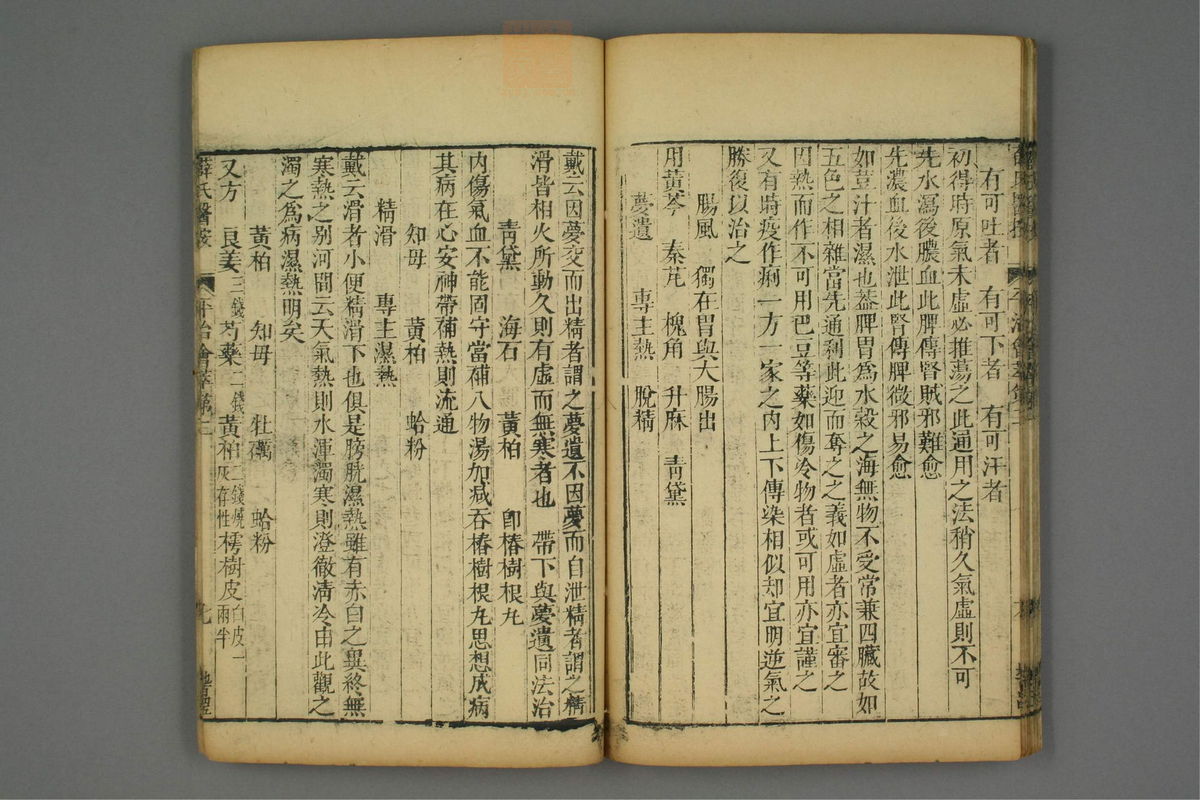 有可吐者　有可下者　有可汗者
初得時原氣未虛必推蕩之此通用之法稍久氣虛則不可
先水瀉後膿血此脾傳腎賊邪難愈
先濃血後水泄此腎傳脾微邪易愈
如荳汁者濕也蓋脾胃爲水穀之海無物不受常兼四臟故如
五色之相雜當先通利此迎而奪之之義如虛者亦宜審之
因熱而作不可用巴豆等藥如傷冷物者或可用亦宜謹之
又有時疫作痢一方一家之内上下傳染相似却宜明逆氣之
勝復以治之
腸風　獨在胃與大腸出
用黃芩　秦芃　槐角　升麻　青黛
夢遺　專主熱　脫精
戴云因夢交而出精者謂之夢遺不因夢而自泄精者謂之精
滑皆相火所動久則有虛而無寒者也　帶下與夢遺同法治
青黛　海石　黃柏　卽椿樹根丸
内傷氣血不能固守當補八物湯加减吞椿樹根丸思想成病
其病在心安神帶補熱則流通
知母　黃柏　蛤粉
精滑　專主濕熱
戴云滑者小便精滑下也俱是膀胱濕熱雖有赤白之異終無
寒熱之别河間云天氣熱則水渾濁寒則澄徹清冷由此觀之
濁之爲病濕熱明矣
黃柏　知母　牡礪　蛤粉
又方　良姜三錢芍藥二錢黃柏二錢燒灰存性樗樹皮白皮一兩半
薛氏醫按　平治會萃第二　七